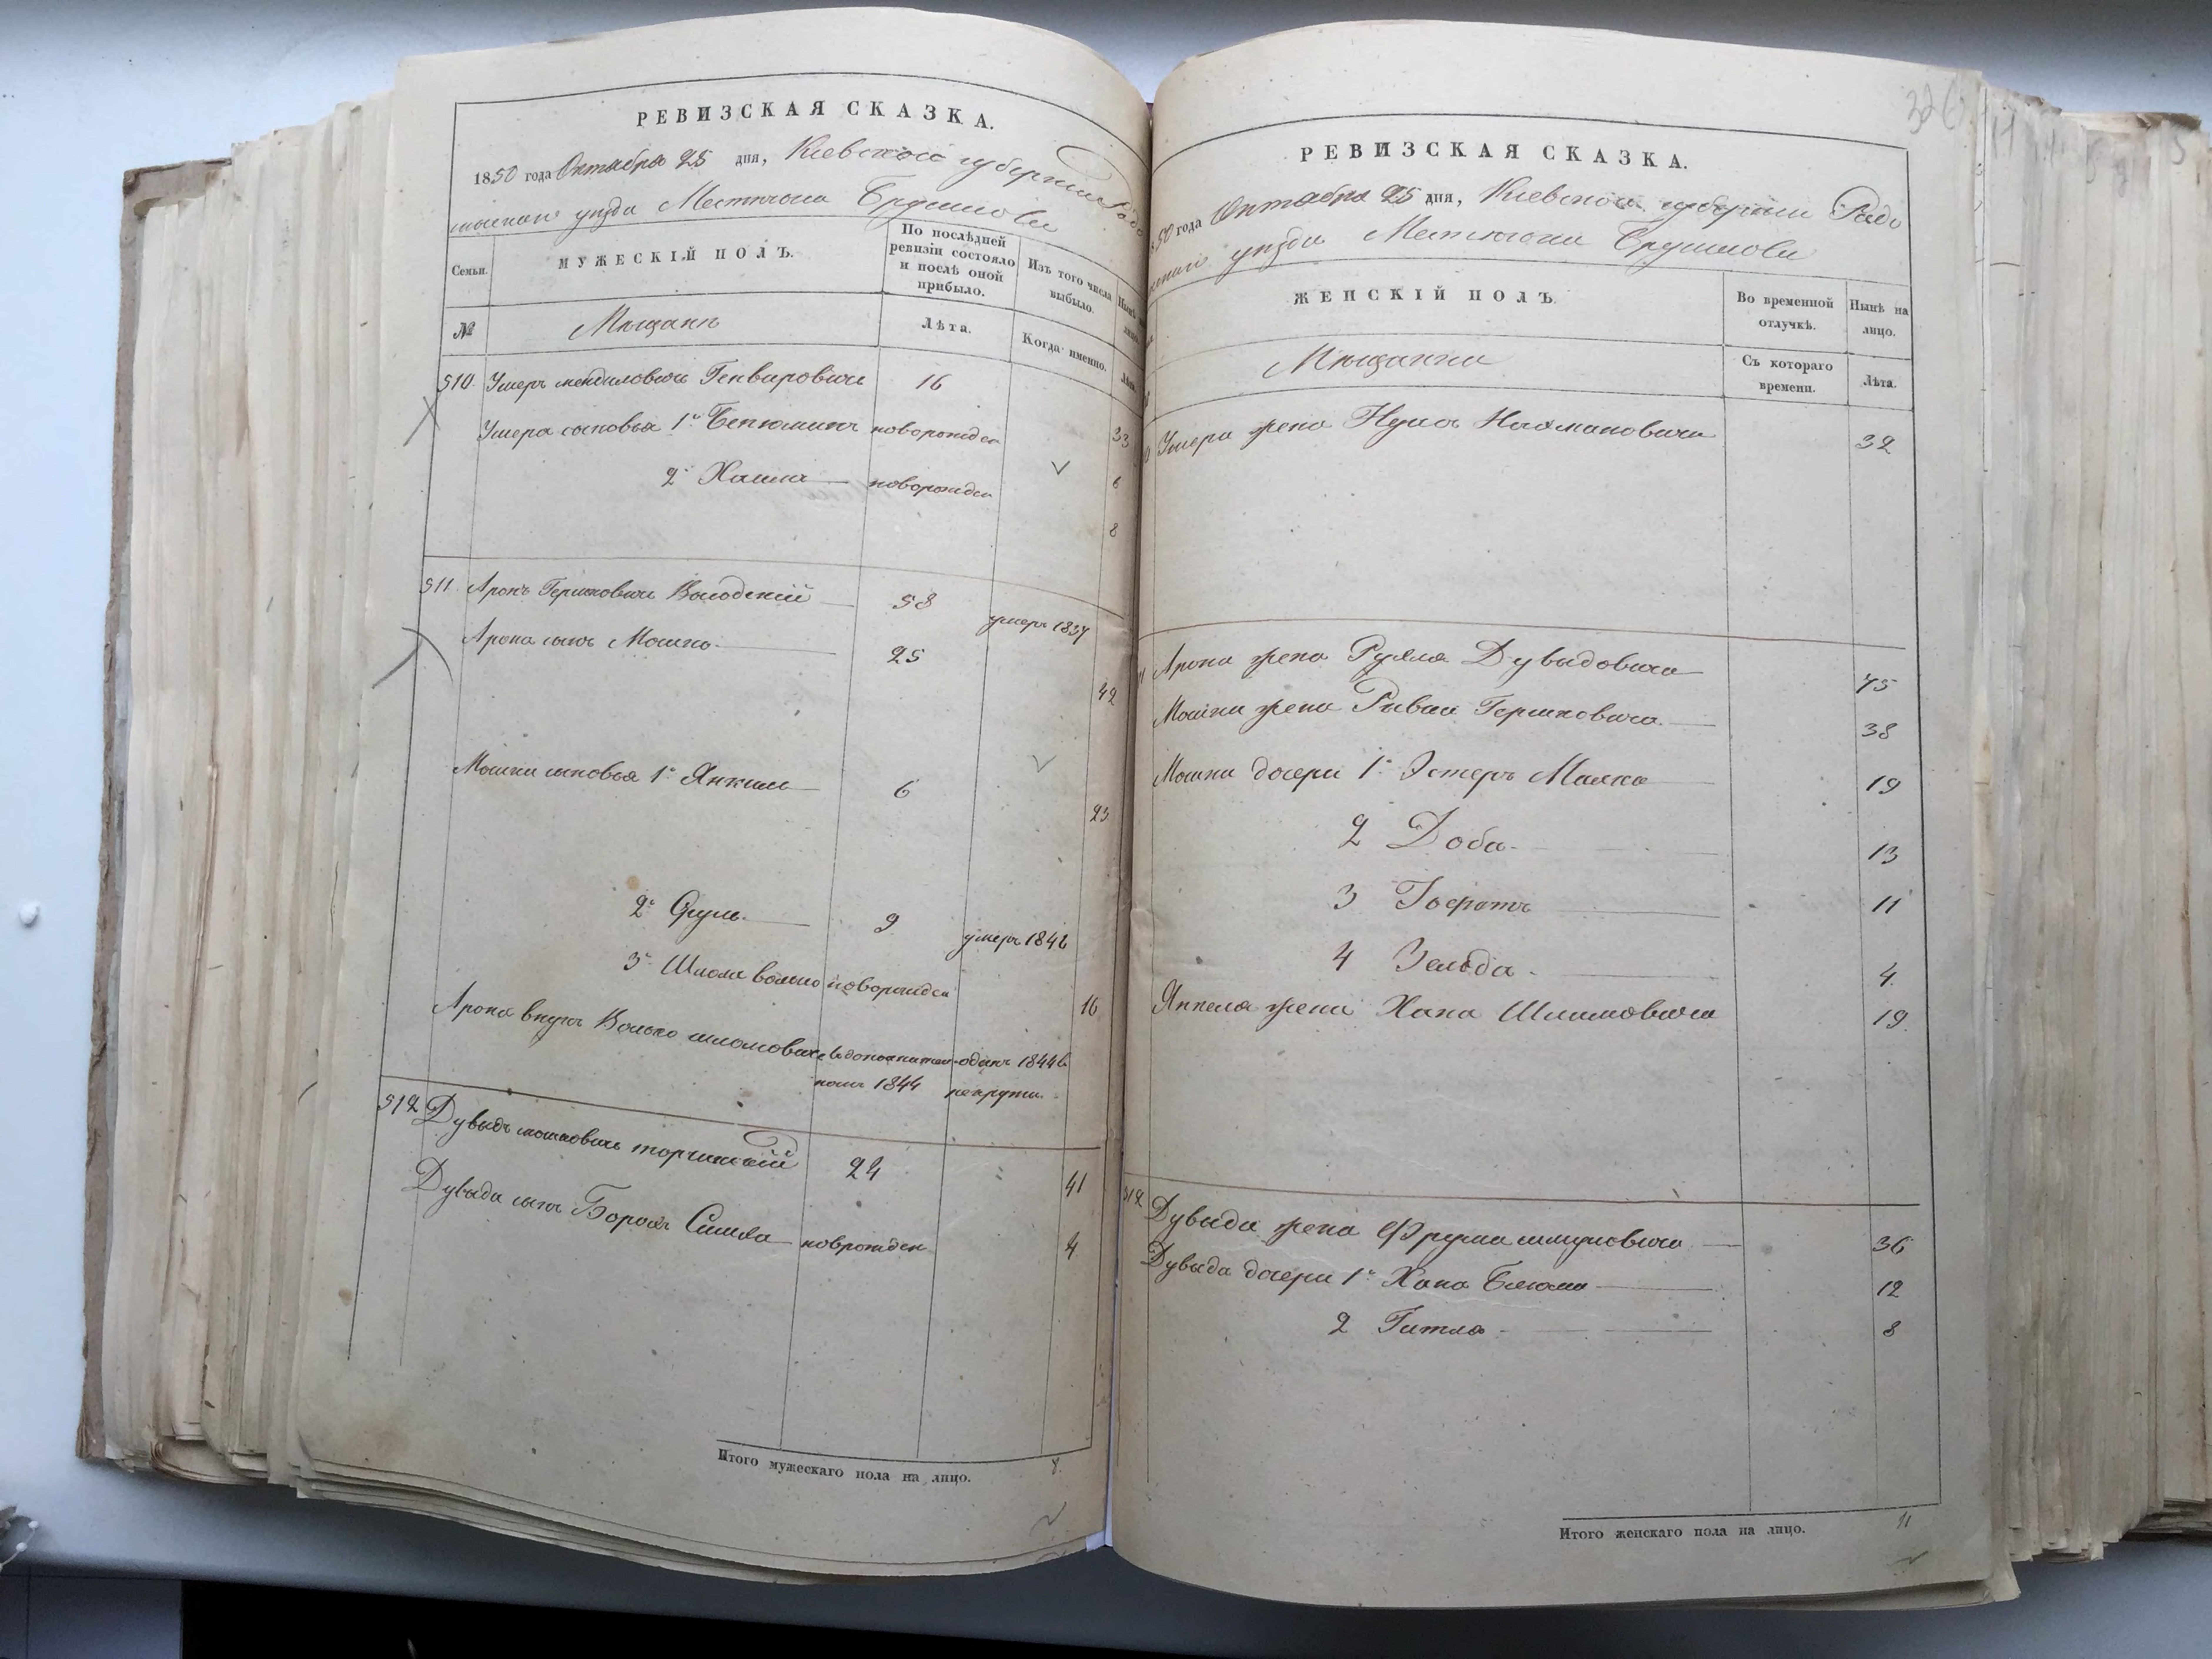 РЕВИЗСКАЯ СКАЗКА.
1850 года Октября 25 дня, Кіевской губерніи Радо
мысльскаго уѣзда Местечка Брусилова
Семьи.
МУЖЕСКІЙ ПОЛЪ.
По послѣдней ревизіи состояло и послѣ оной прибыло.
Изъ того числа выбыло.
Нынѣ на лицо.
№
Мѣщанъ
Лѣта.
Когда именно.
Лѣта.
510. Умеръ Мендиловичъ 16
33
Умера сыновья 1й Бенюминъ новорожден
6
2й Хаимъ новорожден
8
511 Аронъ Гершковичъ 58 умеръ 1837
Арона сынъ Мошко 25
42
Мошки сыновья 1й Янкель 6
23
2й Сруль 9 умеръ 1846
3й Шлома Волько новорожден
16
Арона внукъ Волько Шломовичъ в дополнител отданъ 1844 в
номъ 1844 рекруты.
512 Дувидъ Мошковичъ Торчинскій 24
41
Дувида сынъ Борохъ Симха новорожден
4
Итого мужескаго пола на лицо.
326
РЕВИЗСКАЯ СКАЗКА.
50 года Октября 25 дня, Кіевской губерніи Радо
уѣзда Местечка Брусилова
ЖЕНСКІЙ ПОЛЪ.
Во временной отлучкѣ.
Нынѣ на лицо.
Мѣщанки
Съ котораго времени.
Лѣта.
Умера жена Нухимовича 32
Арона жена Рухля Дувидовича 75
Мошки жена Ривка Гершковича 38
Мошки дочери 1я Эстеръ Малка 19
2 Доба 13
3 11
4 Зельда 4
Янкеля жена Хана Шлимовича 19
512 Дувида жена Фрума Шмуловича 36
Дувида дочери 1я Хана Блюма 12
2 Гитля 8
Итого женскаго пола на лицо. 11